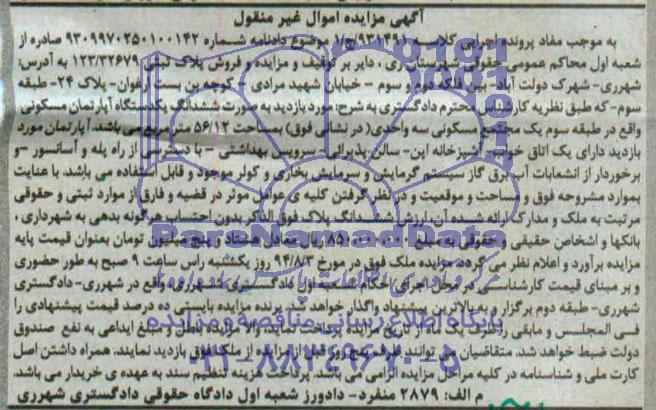 آگهی مزایده اموال غیر منقول
به موجب مفاد پرونده اجرایی کلاسه ۹۳۱۴۹۱/ج/۱ موضوع دادنامه شماره ۹۳۰۹۹۷۰۲۵۰۱۰۰۱۴۲ صادره از
شعبه اول محاکم عمومی حقوقی شهرستان ری، دایر بر توقیف و مزایده و فروش پلاک ثبتی ۱۲۳/۳۲۶۷۹ به آدرس:
شهرری- شهرک دولت آباد- بین فلکه دوم و سوم - خیابان شهید مرادی - کوچه بن بست ارغوان- پلاک ۲۴- طبقه
سوم- که طبق نظریه کارشناس محترم دادگستری به شرح: مورد بازدید به صورت ششدانگ یکدستگاه آپارتمان مسکونی
واقع در طبقه سوم یک مجتمع مسکونی سه واحدی( در نشانی فوق) بمساحت ۵۶/۱۲ متر مربع می باشد. آپارتمان مورد
بازدید دارای یک اتاق خواب- آشپزخانه اپن- سالن پذیرائی- سرویس بهداشتی - با دسترسی از راه پله و آسانسور -و
برخوردار از انشعابات آب برق گاز سیستم گرمایش و سرمایش بخاری و کولر موجود و قابل استفاده می باشد. با عنایت
بموارد مشروحه فوق و مساحت و موقعیت و در نظر گرفتن کلیه ی عوامل موثر در قضیه و فارق از موارد ثبتی و حقوقی
مرتبت به ملک و مدارک ارائه شده آن، ارزش ششدانگ پلاک فوق الذکر بدون احتساب هرگونه بدهی به شهرداری،
بانکها و اشخاص حقیقی و حقوقی به مبلغ ۸۵۰.۰۰۰.۰۰۰ ریال معادل هشتاد و پنج میلیون تومان بعنوان قیمت پایه
مزایده برآورد و اعلام نظر می گردد. مزایده ملک فوق در مورخ ۹۴/۸/۳ روز یکشنبه راس ساعت ۹ صبح به طور حضوری
و بر مبنای قیمت کارشناسی در محل اجرای احکام شعبه اول دادگستری شهرری واقع در شهرری- دادگستری
شهرری- طبقه دوم برگزار و به بالاترین پیشنهاد واگذار خواهد شد. برنده مزایده بایستی ده درصد قیمت پیشنهادی را
فی المجلس و مابقی را ظرف یک ماه از تاریخ مزایده پرداخت نماید والا مزایده باطل و مبلغ ایداعی به نفع صندوق
دولت ضبط خواهد شد. متقاضیان می توانند ظرف پنج روز قبل از مزایده از ملک فوق بازدید نمایند. همراه داشتن اصل
کارت ملی و شناسنامه در کلیه مراحل مزایده الزامی می باشد. پرداخت هزینه تنظیم سند به عهده ی خریدار می باشد.
م الف: ۲۸۷۹ منفرد- دادورز شعبه اول دادگاه حقوقی دادگستری شهرری
ParsNamadData
پایگاه اطلاع رسانی مناقصه و مزایده
۰۲۱-۸۸۳۴۹۶۷۰-۵